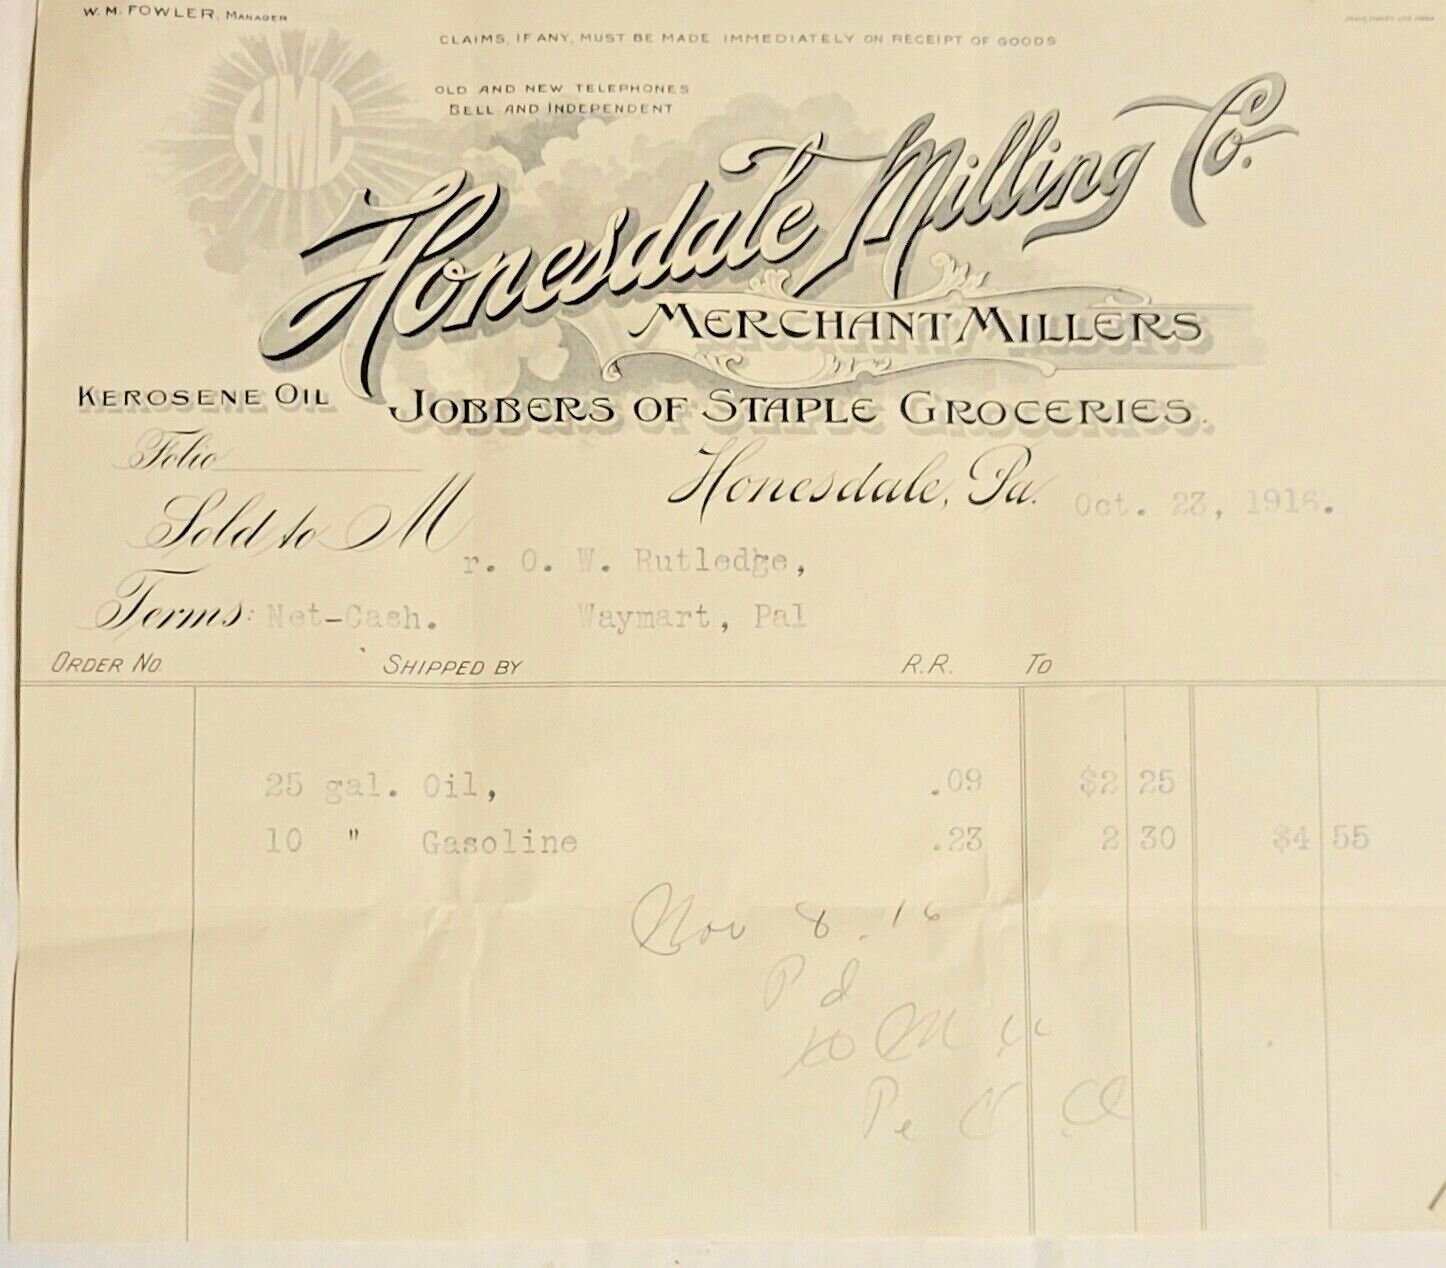 W. M. FOWLER, MANAGER
CLAIMS, IF ANY, MUST BE MADE IMMEDIATELY ON RECEIPT OF GOODS
OLD AND NEW TELEPHONES
BELL AND INDEPENDENT
HMC
Honesdale Milling Co.
MERCHANT MILLERS
KEROSENE OIL JOBBERS OF STAPLE GROCERIES.
Folio
Honesdale, Pa. Oct. 23, 1916.
Sold to Mr. O. W. Rutledge,
Terms: Net-Cash. Waymart, Pal
ORDER NO. SHIPPED BY R.R. TO
25 gal. Oil, .09 $2 25
10 " Gasoline .23 2 30 $4 55
Nov 8. 16
Pd